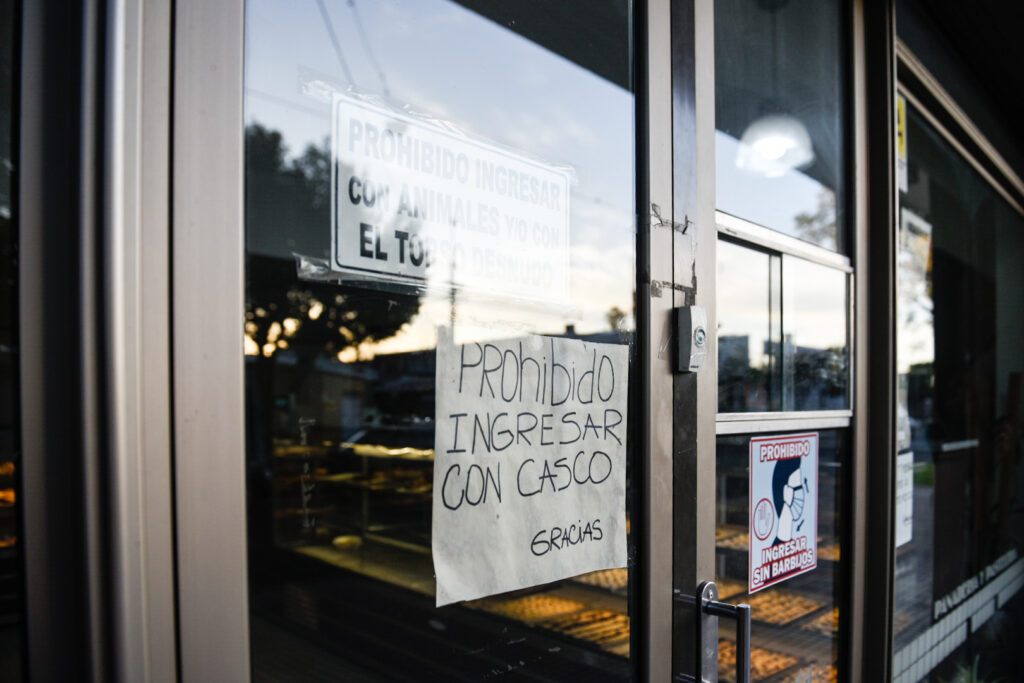 PROHIBIDO INGRESAR
CON ANIMALES Y/O CON
EL TORSO DESNUDO
PROhibiDO
INGRESAR
CON CASCO
GRACiAS
PROHIBIDO
INGRESAR
SIN BARBIJOS
PANADERIA Y